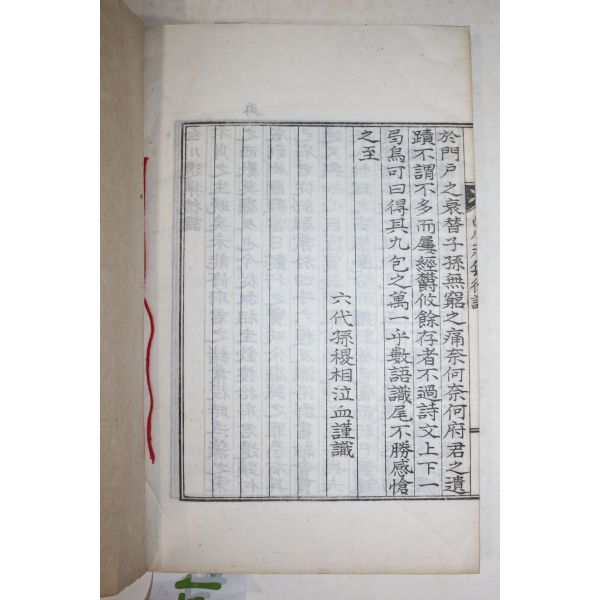 於門戶之衰替子孫無窮之痛奈何奈何府君之遺
蹟不謂不多而屢經欝攸餘存者不過詩文上下一
局烏可曰得其九包之萬一乎數語識尾不勝感愴
之至
六代孫稷相泣血謹識